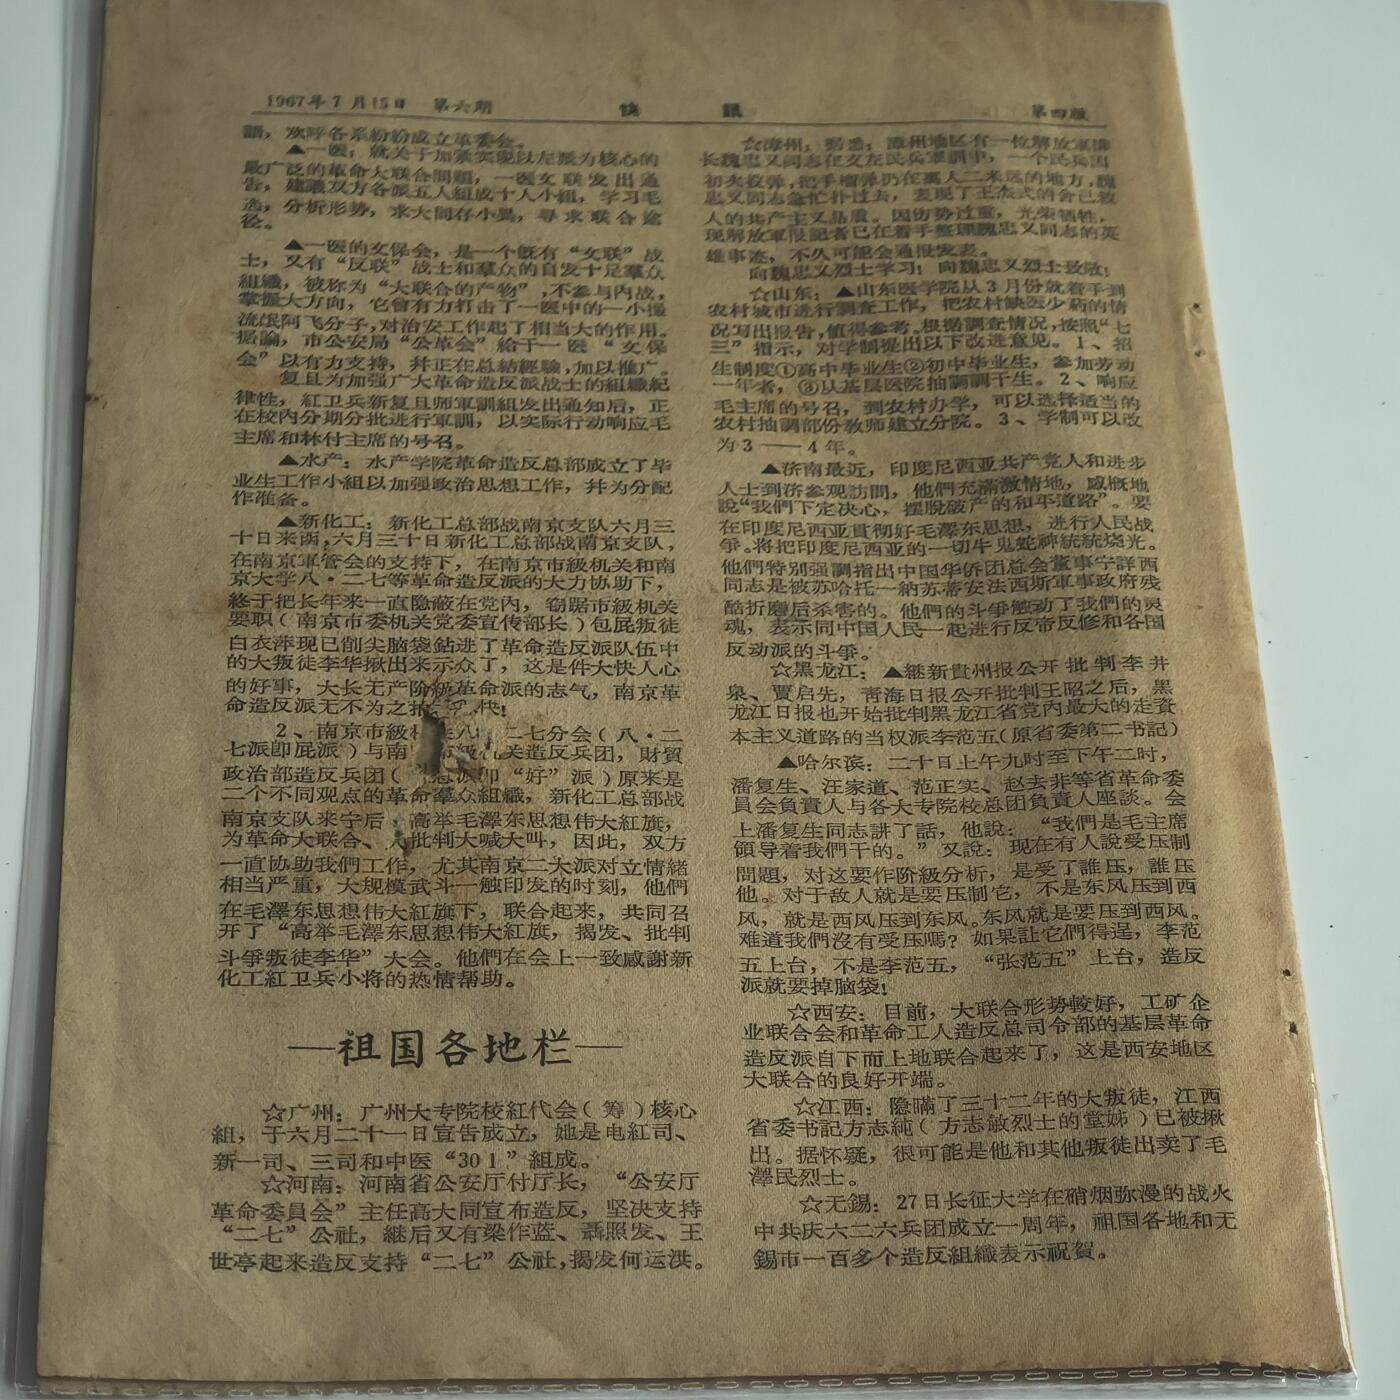 1967年7月15日 第六期 快 訊 第四版
語，欢呼各系紛紛成立革委会。
▲一医：就关于加紧实现以左派为核心的
最广泛的革命大联合問題，一医女联发出通
告，建議双方各派五人組成十人小組，学习毛
选，分析形势，求大同存小异，寻求联合途
径。
▲一医的女保会，是一个既有“女联”战
士，又有“反联”战士和羣众的自发十足羣众
組織，被称为“大联合的产物”，不参与内战，
掌握大方向，它曾有力打击了一医中的一小撮
流氓阿飞分子，对治安工作起了相当大的作用。
据論，市公安局“公革会”給于一医“女保
会”以有力支持，幷正在总結經驗，加以推广。
复旦为加强广大革命造反派战士的組織紀
律性，紅卫兵新复旦师軍訓組发出通知后，正
在校內分期分批进行軍訓，以实际行动响应毛
主席和林付主席的号召。
▲水产：水产学院革命造反总部成立了毕
业生工作小組以加强政治思想工作，幷为分配
作准备。
▲新化工：新化工总部战南京支队六月三
十日来函，六月三十日新化工总部战南京支队，
在南京軍管会的支持下，在南京市級机关和南
京大学八·二七等革命造反派的大力协助下，
終于把长年来一直隐蔽在党內，窃踞市級机关
要职（南京市委机关党委宣传部长）包庇叛徒
白衣萍現已削尖脑袋鉆进了革命造反派队伍中
的大叛徒李华揪出来示众了，这是件大快人心
的好事，大长无产阶級革命派的志气，南京革
命造反派无不为之拍 快！
2、南京市級 八 二七分会（八·二
七派卽屁派）与南 市級机关造反兵团，財貿
政治部造反兵团（ 派卽“好”派）原来是
二个不同观点的革命羣众組織，新化工总部战
南京支队来宁后，高举毛澤东思想伟大紅旗，
为革命大联合、大批判大喊大叫，因此，双方
一直协助我們工作，尤其南京二大派对立情緖
相当严重，大规模武斗一触卽发的时刻，他們
在毛澤东思想伟大紅旗下，联合起来，共同召
开了“高举毛澤东思想伟大紅旗，揭发、批判
斗爭叛徒李华”大会。他們在会上一致感謝新
化工紅卫兵小将的热情帮助。
—祖国各地栏—
☆广州：广州大专院校紅代会（筹）核心
組，于六月二十一日宣告成立，她是由紅司、
新一司、三司和中医“301”組成。
☆河南：河南省公安厅付厅长，“公安厅
革命委員会”主任高大同宣布造反，坚决支持
“二七”公社，継后又有梁作蓝、聶照发、王
世亭起来造反支持“二七”公社，揭发何运洪。
☆漳州：据悉，漳州地区有一位解放軍排
长魏忠义同志在支左民兵軍訓中，一个民兵因
初次投弹，把手榴弹扔在离人二米远的地方，魏
忠义同志急忙扑过去，表现了王杰式的舍己救
人的共产主义品质。因伤势过重，光荣牺牲，
现解放軍报記者已在着手整理魏忠义同志的英
雄事迹，不久可能会通报发表。
向魏忠义烈士学习！向魏忠义烈士致敬！
☆山东：▲山东医学院从3月份就着手到
农村城市进行調查工作，把农村缺医少葯的情
况写出报告，値得参考。根据調查情况，按照“七
三”指示，对学制提出以下改进意见。1、招
生制度①高中毕业生②初中毕业生，参加劳动
一年者，③从基层医院抽調調干生。2、响应
毛主席的号召，到农村办学，可以选择适当的
农村抽調部份敎师建立分院。3、学制可以改
为3——4年。
▲济南最近，印度尼西亚共产党人和进步
人士到济参观訪問，他們充滿激情地，感慨地
說“我們下定决心，摆脫破产的和平道路”。要
在印度尼西亚貫彻好毛澤东思想，进行人民战
爭。将把印度尼西亚的一切牛鬼蛇神統統烧光。
他們特别强調指出中国华侨团总会董事宁詳西
同志是被苏哈托一納苏蒂安法西斯軍事政府残
酷折磨后杀害的。他們的斗爭触动了我們的灵
魂，表示同中国人民一起进行反帝反修和各国
反动派的斗爭。
☆黑龙江：▲継新貴州报公开批判李井
泉、賈启先，靑海日报公开批判王昭之后，黑
龙江日报也开始批判黑龙江省党內最大的走資
本主义道路的当权派李范五（原省委第二书記）
▲哈尔滨：二十日上午九时至下午二时，
潘复生、汪家道、范正实、赵去非等省革命委
員会負責人与各大专院校总团負責人座談。会
上潘复生同志講了話，他說：“我們是毛主席
領导着我們干的。”又說：现在有人說受压制
問題，对这要作阶級分析，是受了誰压，誰压
他。对于敌人就是要压制它，不是东风压到西
风，就是西风压到东风。东风就是要压到西风。
难道我們沒有受压嗎？如果让它們得逞，李范
五上台，不是李范五，“张范五”上台，造反
派就要掉脑袋！
☆西安：目前，大联合形势較好，工矿企
业联合会和革命工人造反总司令部的基层革命
造反派自下而上地联合起来了，这是西安地区
大联合的良好开端。
☆江西：隐瞞了三十二年的大叛徒，江西
省委书記方志純（方志敏烈士的堂姊）已被揪
出。据怀疑，很可能是他和其他叛徒出卖了毛
澤民烈士。
☆无錫：27日长征大学在硝烟弥漫的战火
中共庆六二六兵团成立一周年，祖国各地和无
錫市一百多个造反組織表示祝賀。